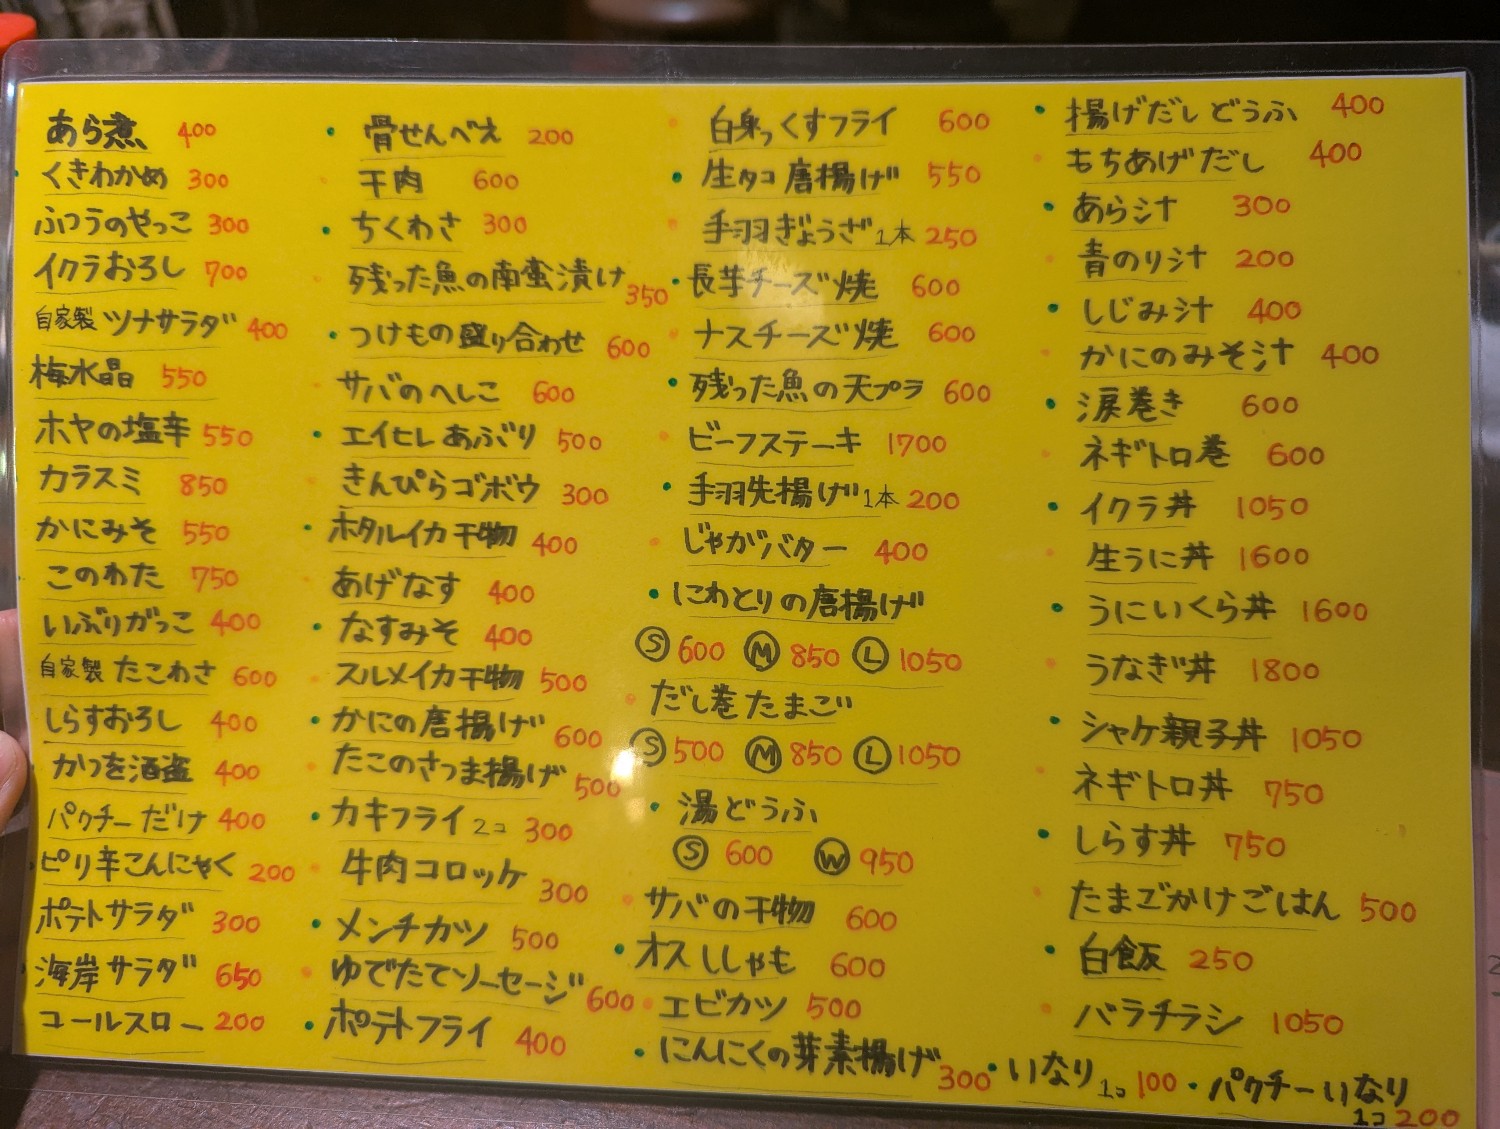 あら煮 400
くきわかめ 300
ふつうのやっこ 300
イクラおろし 700
自家製 ツナサラダ 400
梅水晶 550
ホヤの塩辛 550
カラスミ 850
かにみそ 550
このわた 750
いぶりがっこ 400
自家製 たこわさ 600
しらすおろし 400
かつを酒盗 400
パクチーだけ 400
ピリ辛こんにゃく 200
ポテトサラダ 300
海岸サラダ 650
コールスロー 200
骨せんべえ 200
干肉 600
ちくわさ 300
残った魚の南蛮漬け 350
つけもの盛り合わせ 600
サバのへしこ 600
エイヒレあぶり 500
きんぴらゴボウ 300
ホタルイカ干物 400
あげなす 400
なすみそ 400
スルメイカ干物 500
かにの唐揚げ 600
たこのさつま揚げ 500
カキフライ 2コ 300
牛肉コロッケ 300
メンチカツ 500
ゆでたてソーセージ 600
ポテトフライ 400
白身っくすフライ 600
生タコ唐揚げ 550
手羽ぎょうざ 1本 250
長芋チーズ焼 600
ナスチーズ焼 600
残った魚の天プラ 600
ビーフステーキ 1700
手羽先揚げ 1本 200
じゃがバター 400
にわとりの唐揚げ
Ⓢ 600 Ⓜ 850 Ⓛ 1050
だし巻たまご
Ⓢ 500 Ⓜ 850 Ⓛ 1050
湯どうふ
Ⓢ 600 Ⓦ 950
サバの干物 600
オスししゃも 600
エビカツ 500
にんにくの芽素揚げ 300
揚げだしどうふ 400
もちあげだし 400
あら汁 300
青のり汁 200
しじみ汁 400
かにのみそ汁 400
涙巻き 600
ネギトロ巻 600
イクラ丼 1050
生うに丼 1600
うにいくら丼 1600
うなぎ丼 1800
シャケ親子丼 1050
ネギトロ丼 750
しらす丼 750
たまごかけごはん 500
白飯 250
バラチラシ 1050
いなり 1コ 100
パクチーいなり
1コ 200